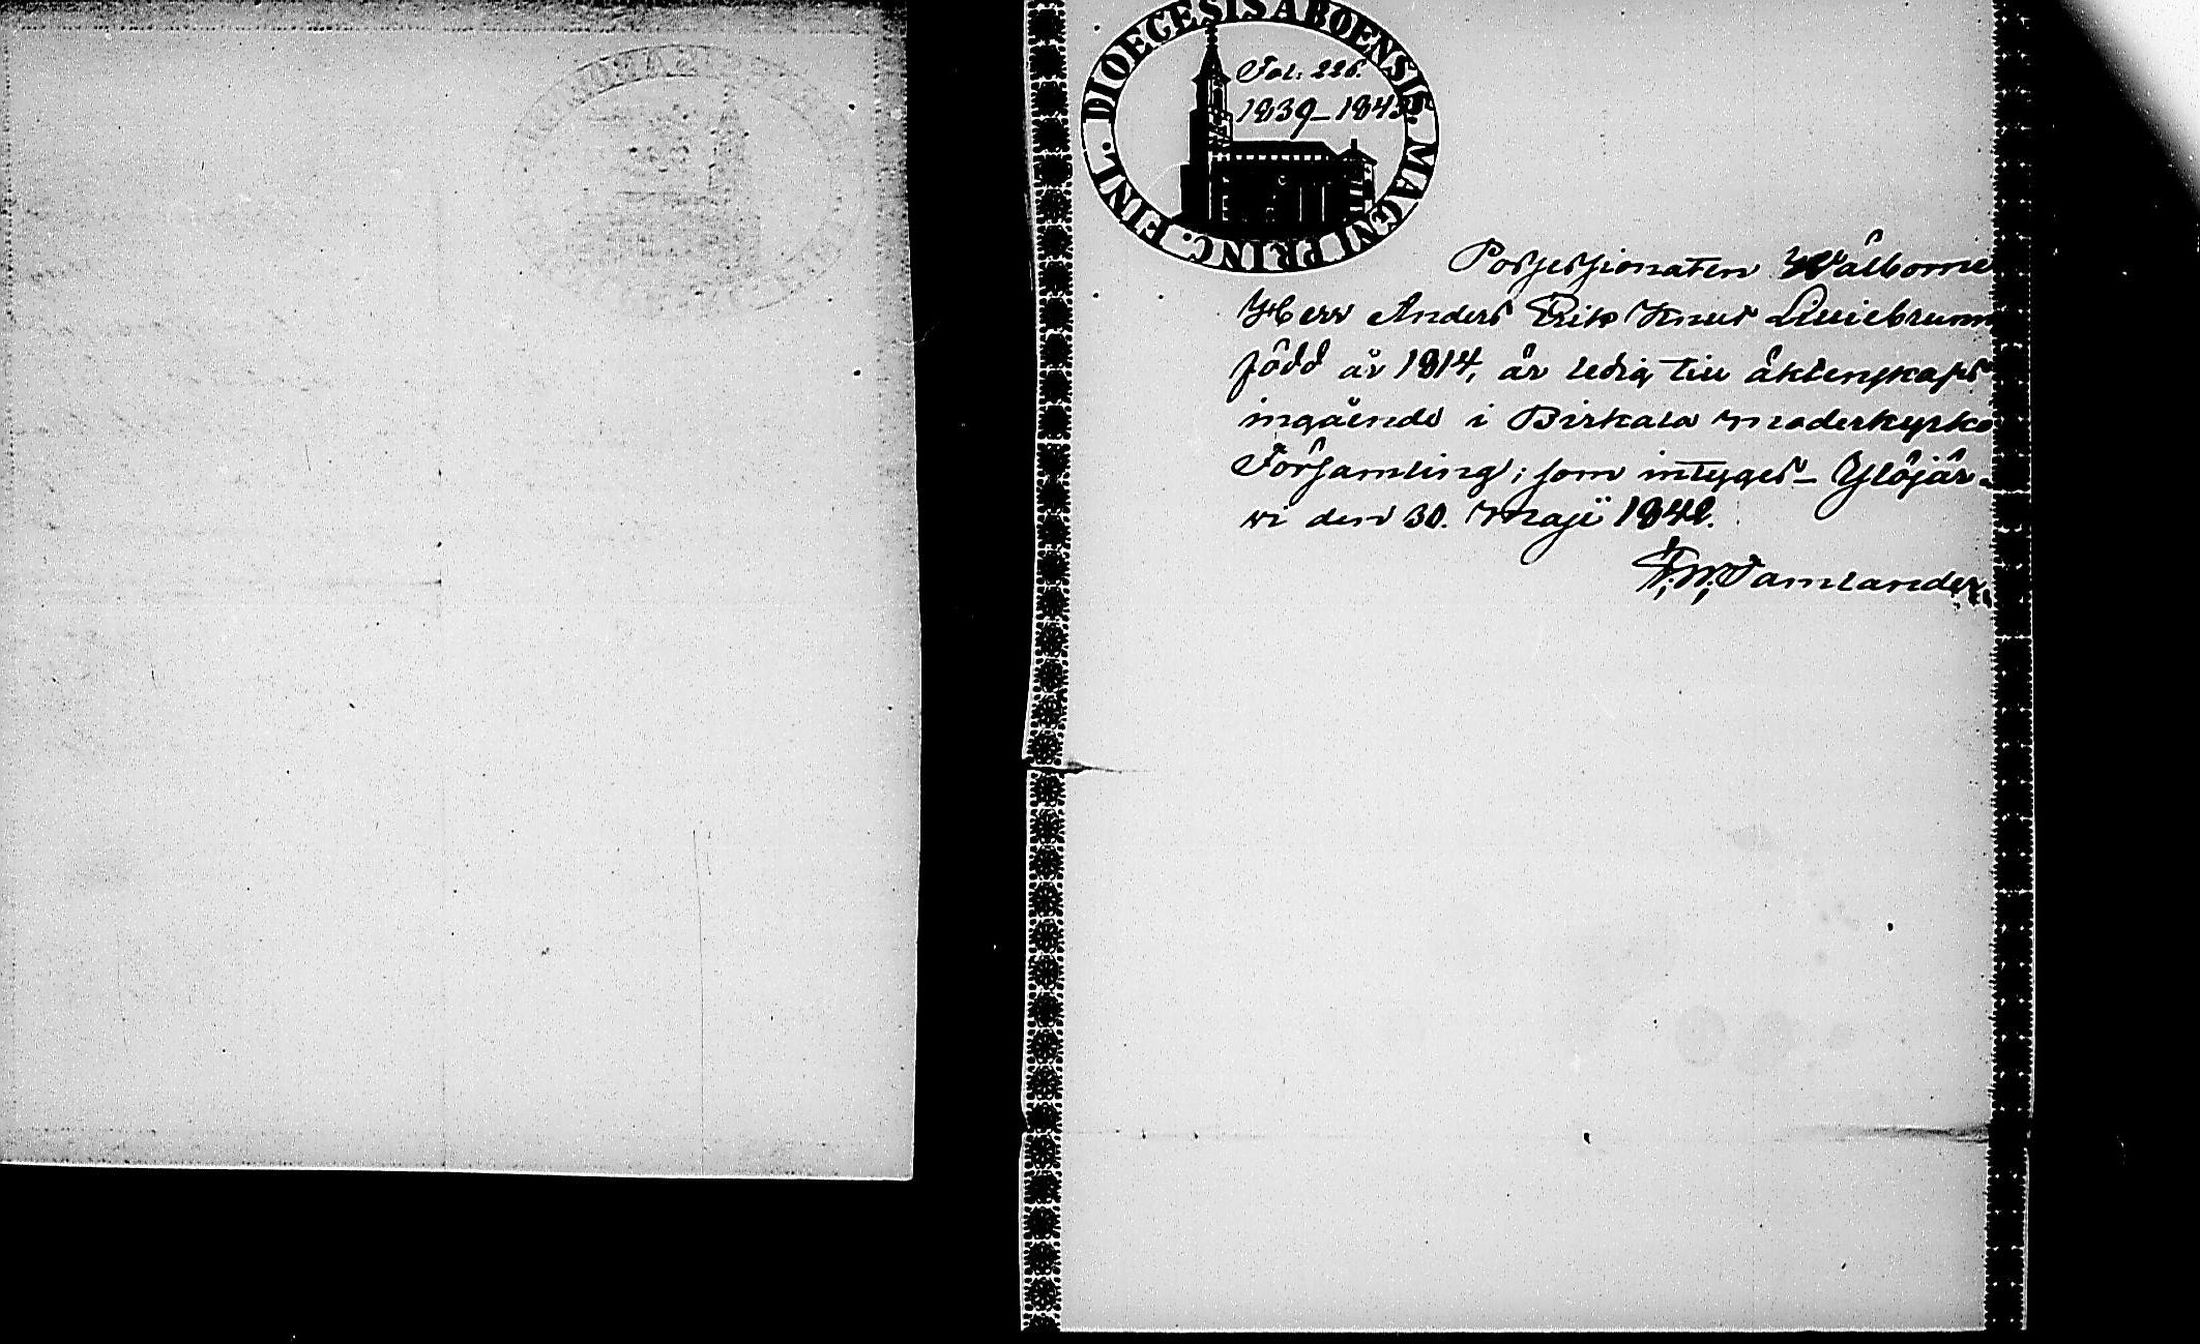 DIOECESIS ABOENSIS. MAGNI PRINC. FINL.
Fol: 226.
1839–1845.
Possessionaten Wälborne
Herr Anders Erik Knut Lilliebrunn
född år 1814, är ledig till äktenskaps
ingående i Birkala moderkyrko
Församling; som intygas – Ylöjär-
vi den 30. Maji 1841.
Tamlander